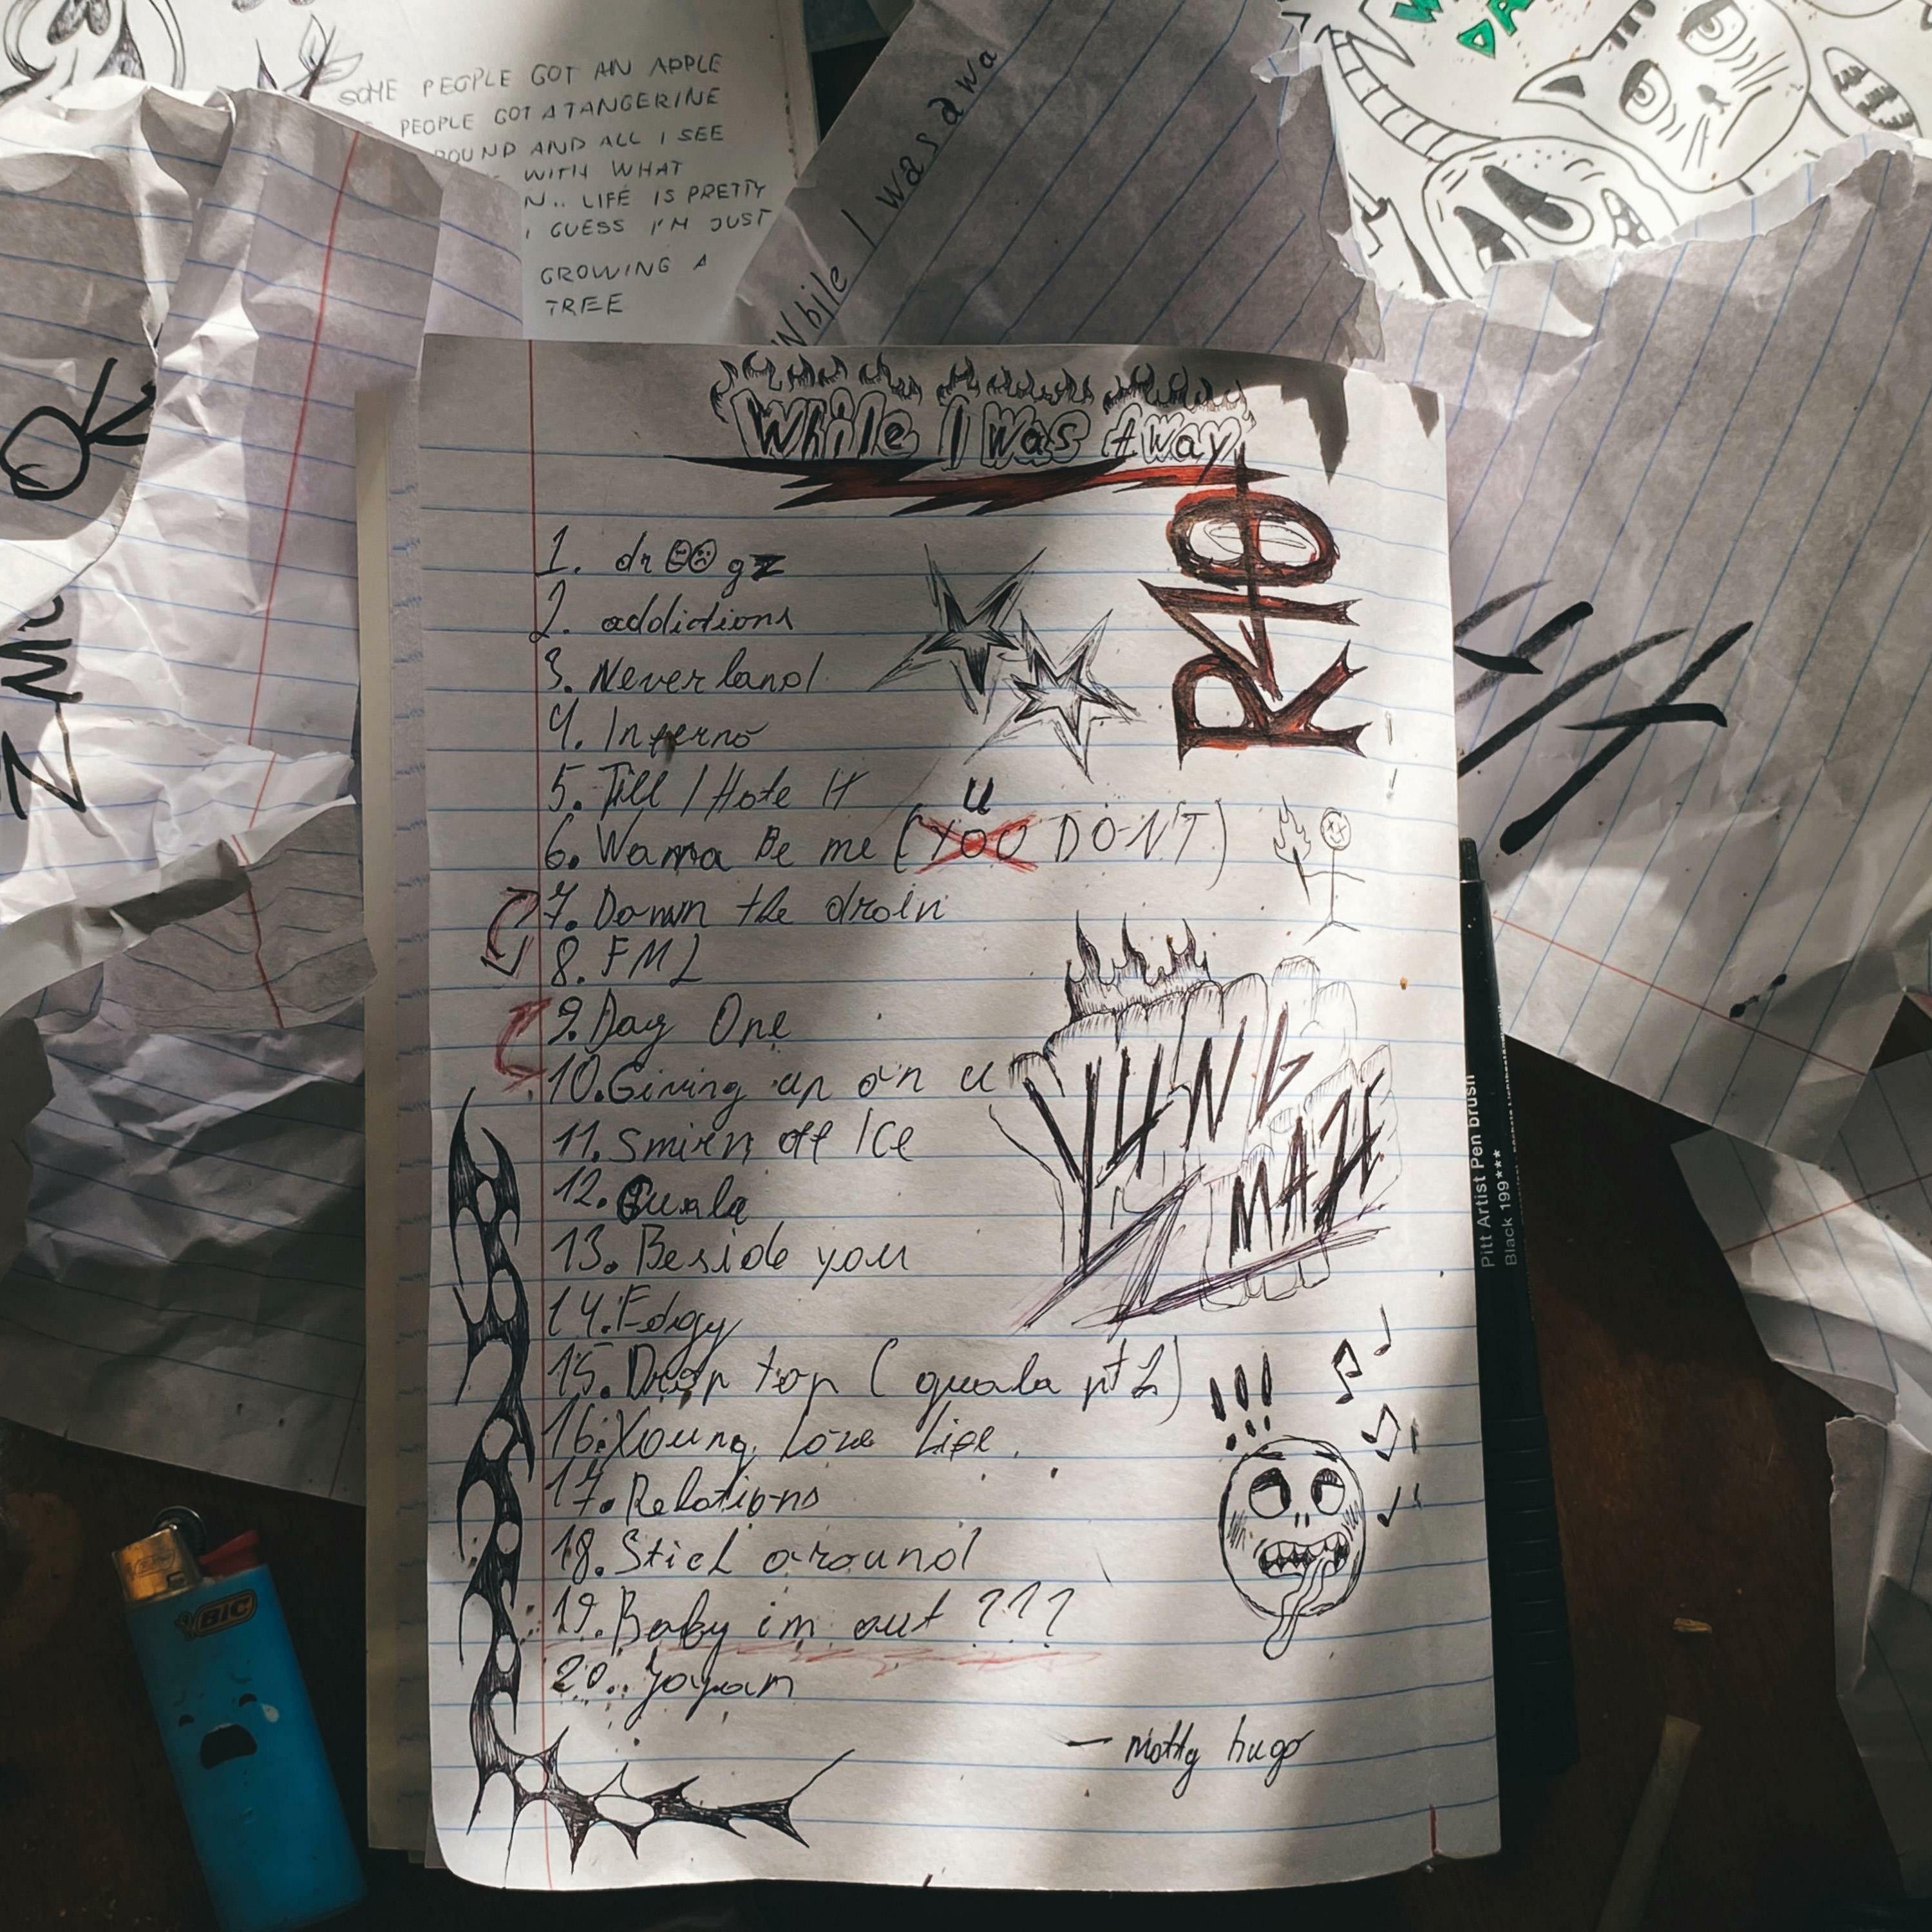 SOME PEOPLE GOT AN APPLE
PEOPLE GOT A TANGERINE
OUND AND ALL I SEE
WITH WHAT
N.. LIFE IS PRETTY
I GUESS I'M JUST
GROWING A
TREE
While I was awa
W
DA
While I Was Away
R10
1. dr☹☹gz
2. addictions
3. Neverland
4. Inferno
5. Till I Hate It
u
6. Wanna Be me (YOU DON'T)
7. Down the drain
8. FML
9. Day One
10. Giving up on u
11. Smirn off Ice
12. Guala
13. Beside you
14. Edgy
15. Drop top (guala pt 2)
16. Young Love Life
17. Relations
18. Stick around
19. Baby im out ???
20.
YUNG
MAZE
!!!
— matty hugo
Pitt Artist Pen brush
Black 199***
BIC